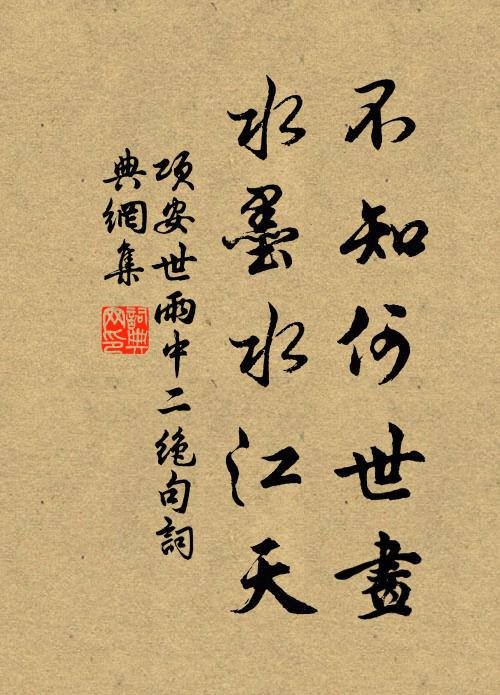 不知何世畫
水墨水江天
項安世雨中二絶句詞
典網集
詞典
网印